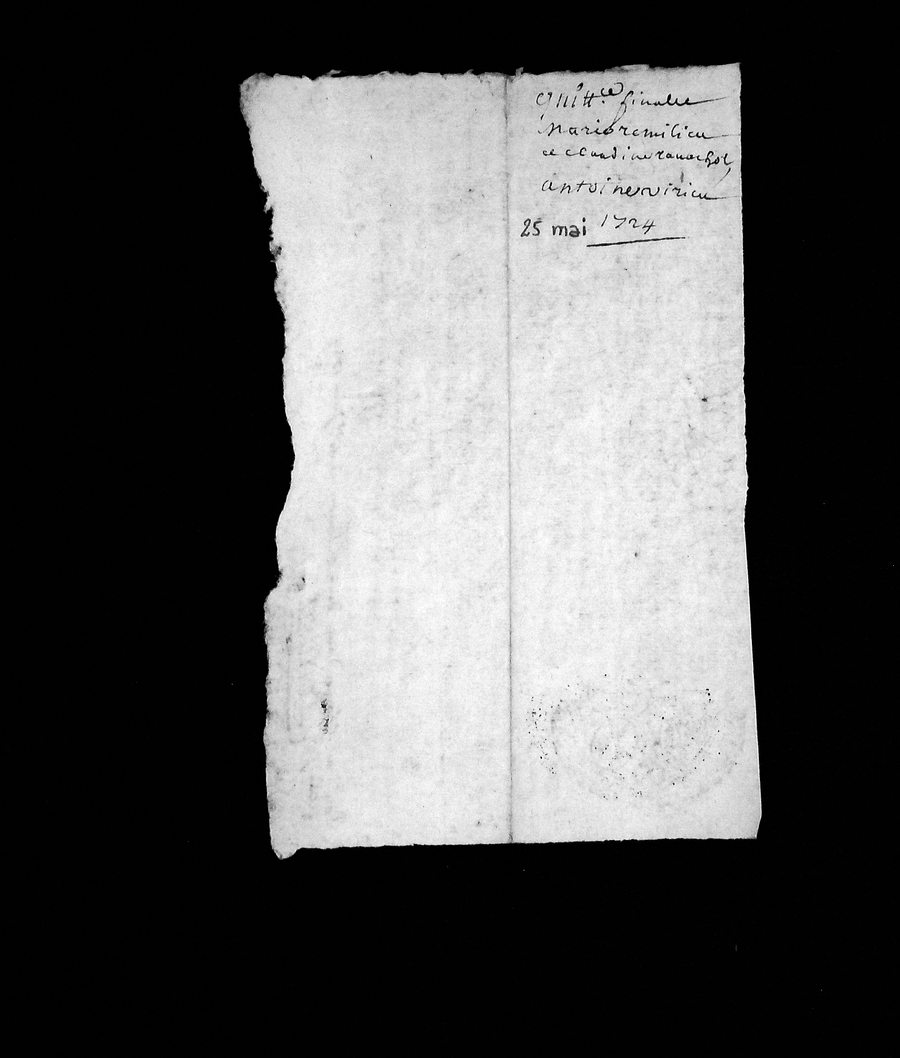 quitt.ce finalle
Marie remilieu
et claudine ravachol
antoine virieu
25 mai 1724